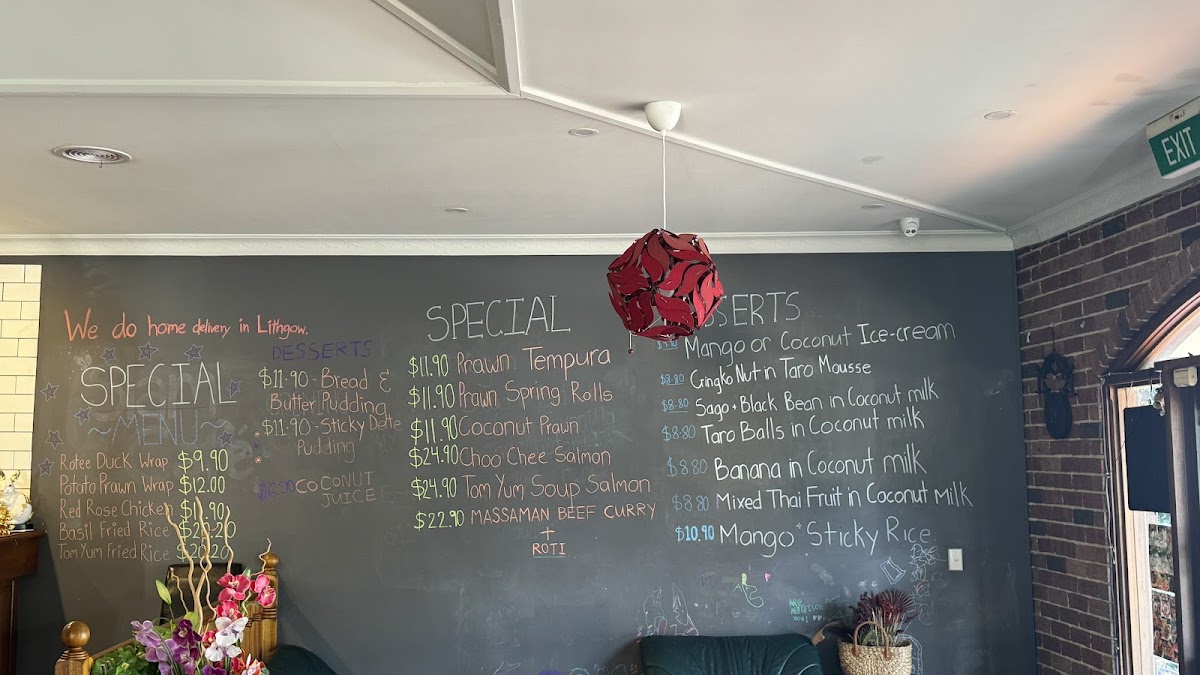 EXIT
We do home delivery in Lithgow.
SPECIAL
~MENU~
Rotee Duck Wrap $9.90
Potato Prawn Wrap $12.00
Red Rose Chicken
Basil Fried Rice
Tom Yum Fried Rice $20.20
DESSERTS
$11.90 - Bread &
Butter Pudding
$11.90 - Sticky Date
Pudding
$6.90 COCONUT
JUICE
SPECIAL
$11.90 Prawn Tempura
$11.90 Prawn Spring Rolls
$11.90 Coconut Prawn
$24.90 Choo Chee Salmon
$24.90 Tom Yum Soup Salmon
$22.90 MASSAMAN BEEF CURRY
+
ROTI
SSERTS
Mango or Coconut Ice-cream
$8.80 Gingko Nut in Taro Mousse
$8.80 Sago + Black Bean in Coconut milk
$8.80 Taro Balls in Coconut milk
$8.80 Banana in Coconut milk
$8.80 Mixed Thai Fruit in Coconut milk
$10.90 Mango * Sticky Rice